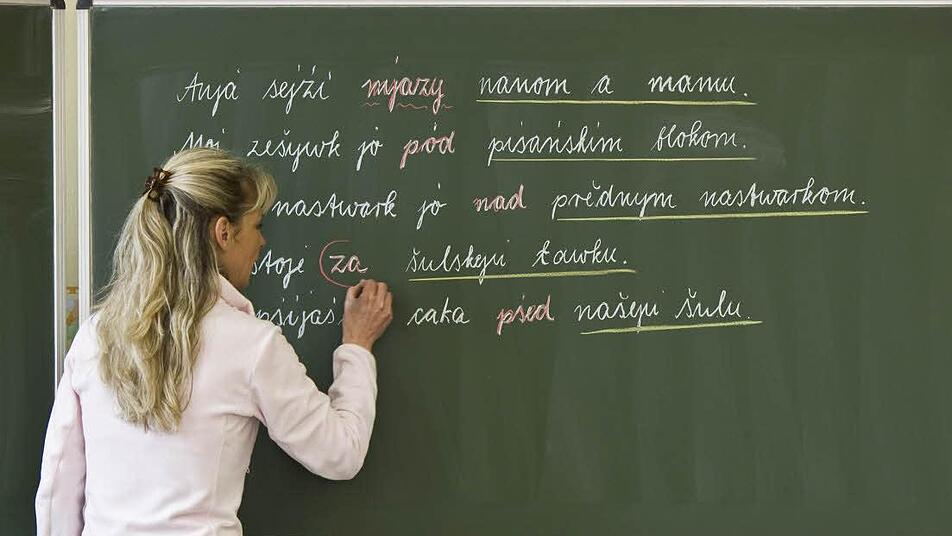 Anja sejźi mjazy nanom a mamu.
zešywk jo pód pisańskim blokom.
nastwark jo nad prědnym nastwarkom.
stoje za šulskeju ławku.
caka pśed našeju šulu.